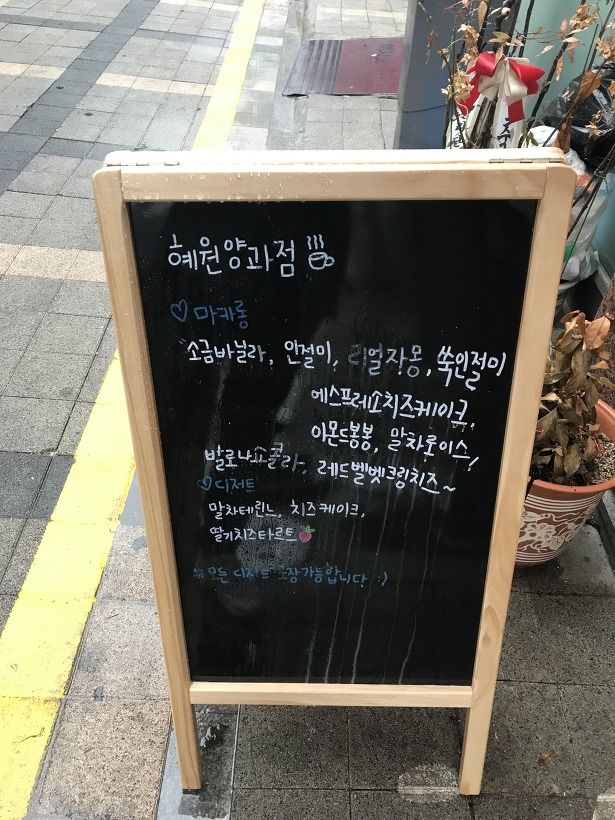 혜원양과점
♡ 마카롱
소금바닐라, 인절미, 리얼자몽, 쑥인절미
에스프레소치즈케이크,
아몬드봉봉, 말차로이스,
발로나쇼콜라, 레드벨벳크림치즈~
♡ 디저트
말차테린느, 치즈케이크,
딸기치즈타르트
* 모든 디저트 포장가능합니다 :)